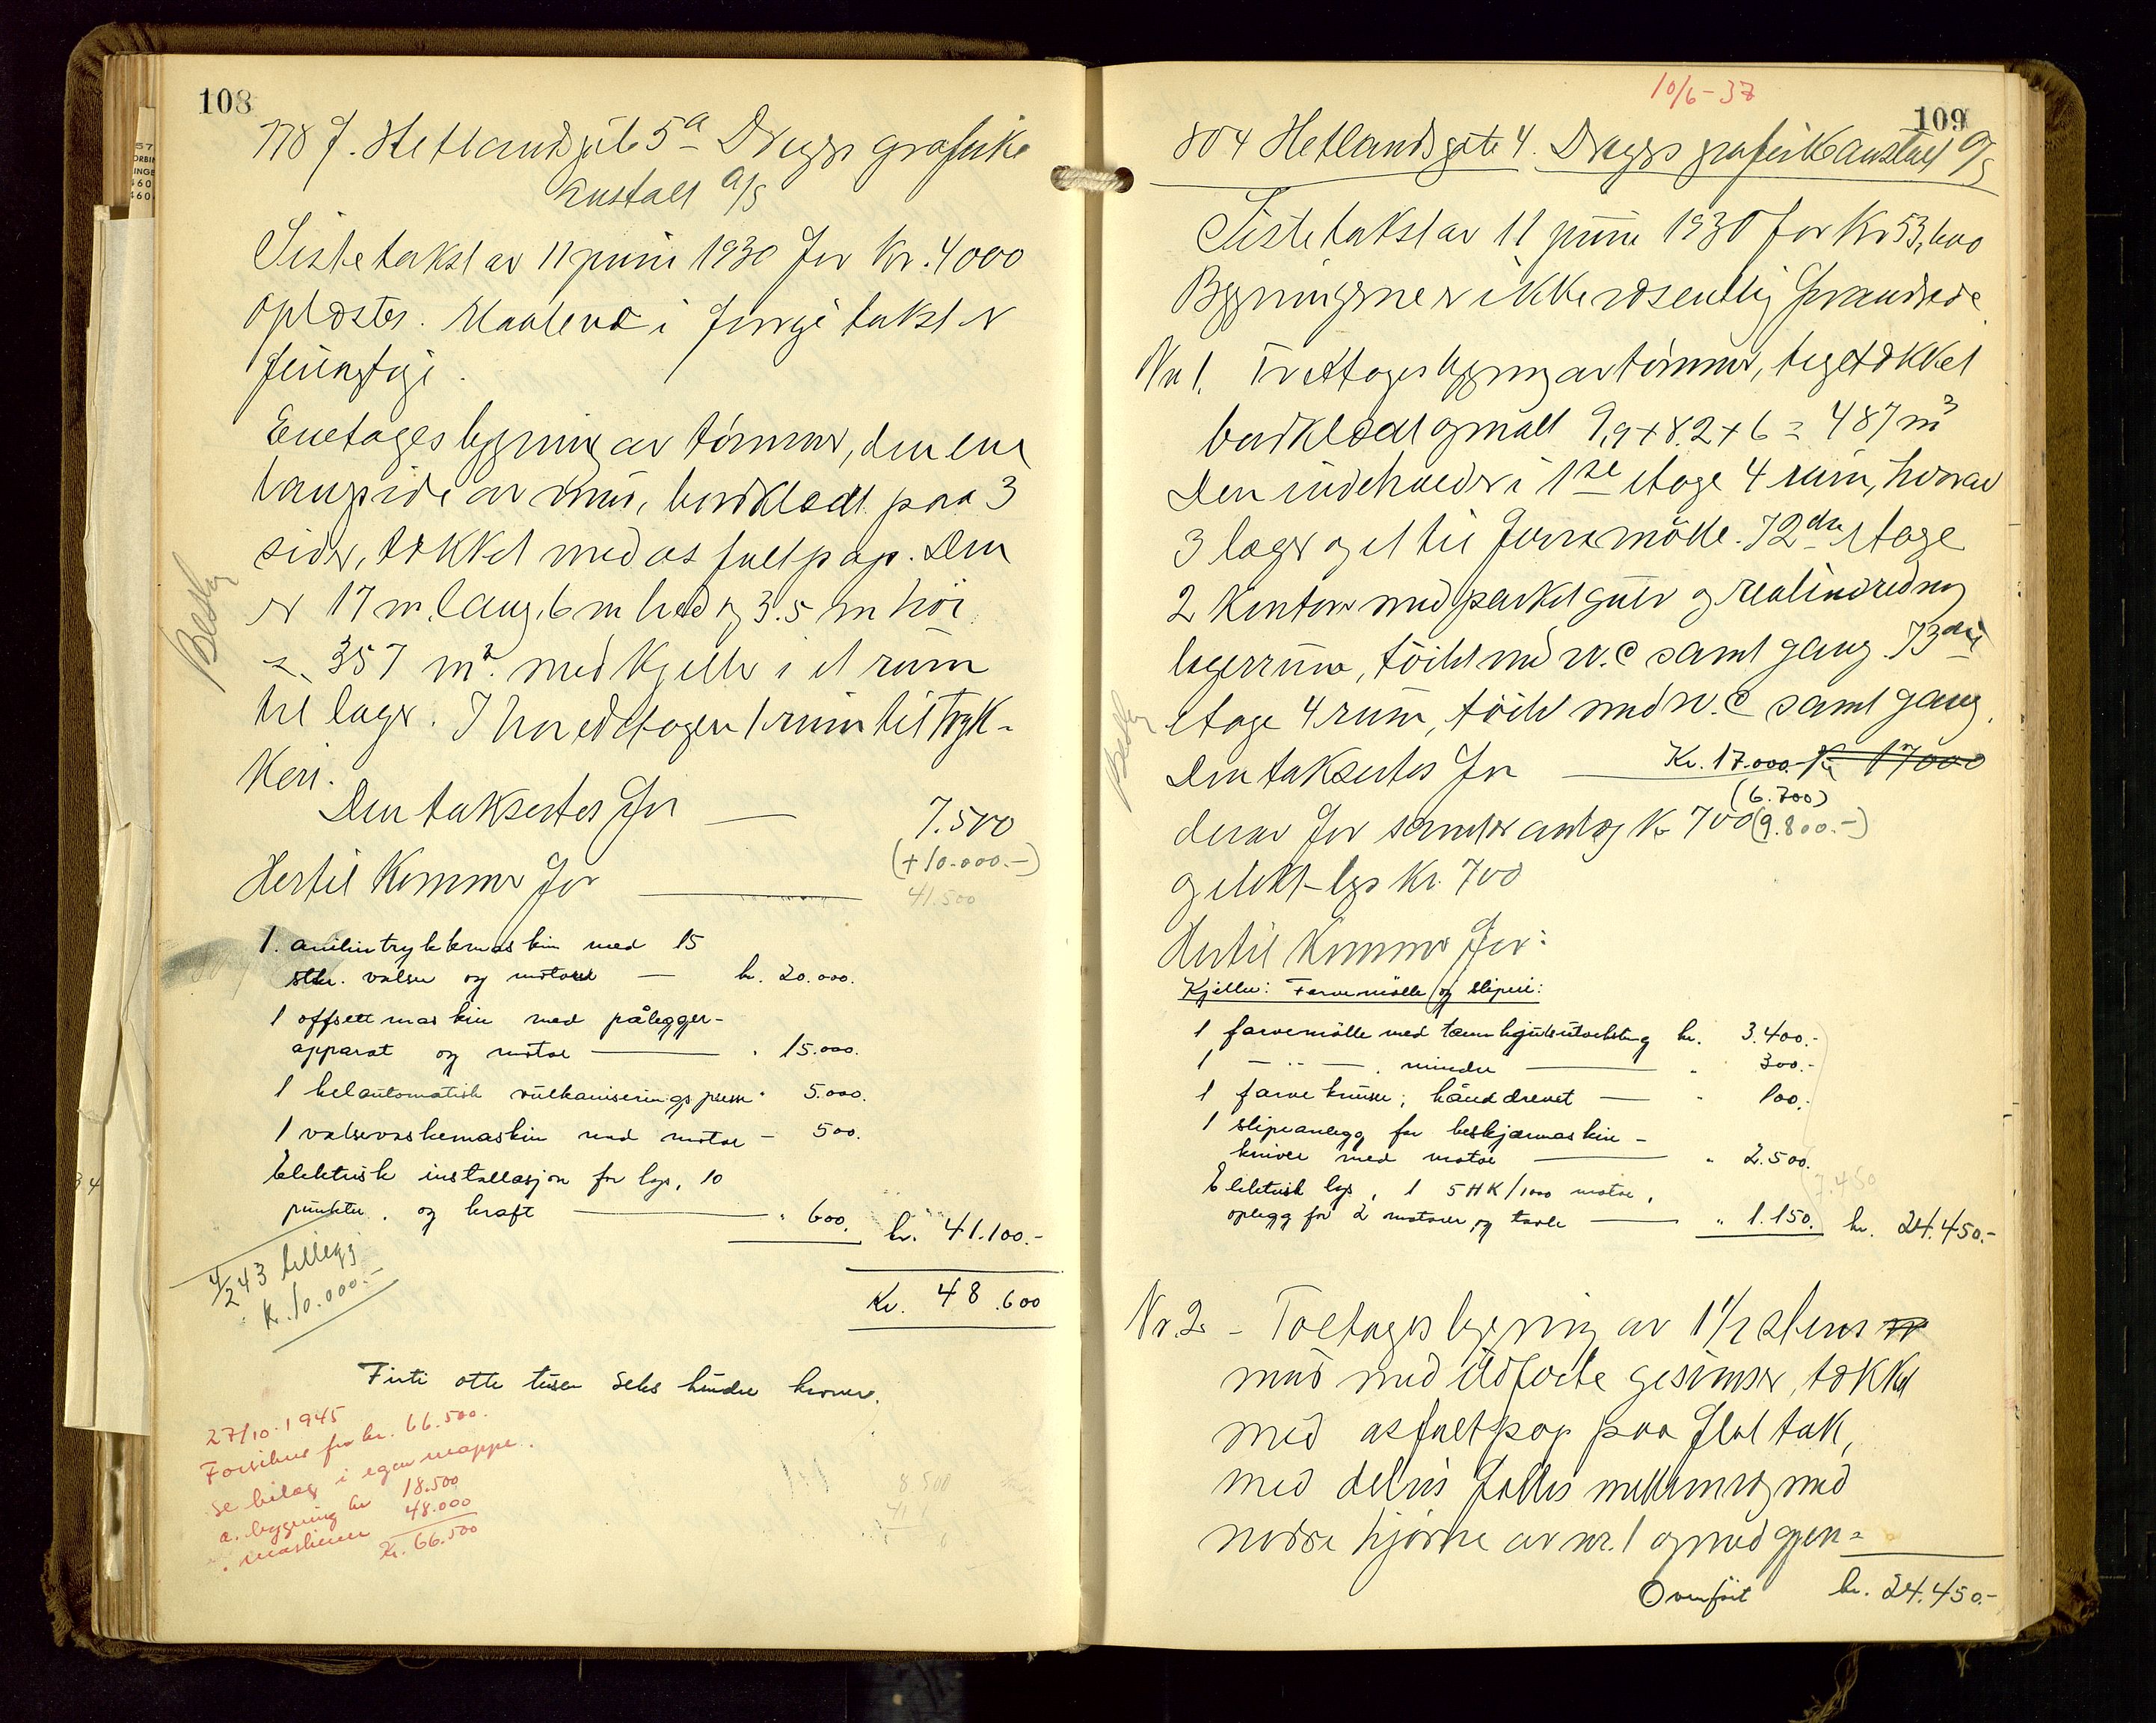 108
778 J. Hetlandsgate 5a Dreyers grafiske
anstalt A/S
Siste takst av 11 juni 1930 for Kr. 4000
oplæstes. Maalene i forrige takst er
feilagtige.
Enetages bygning av tømmer, den ene
langside av mur, bordklædt paa 3
sider, tækket med asfaltpap. Den
er 17 m. lang, 6 m bred og 3.5 m høi
= 357 m³. med kjeller i et rum
til lager. I hovedetagen 1 rum til tryk-
keri.
Den taksertes for — 7.500
(+10.000.-)
Hertil kommer for — 41.500
1. anilintrykkmaskin med 15
stkr. valser og motorer — kr. 20.000.
1 offsettmaskin med pålegger-
apparat og motor — " 15.000.
1 helautomatisk vulkaniseringspresse " 5.000.
1 valsevaskemaskin med motor - 500.
Elektrisk installasjon for lys, 10
punkter, og kraft — " 600. kr. 41.100.-
Kr. 48.600
4/2 43 tillegg
kr. 10.000.-
Firti otte tusen seks hundre kroner.
27/10. 1945
Forsikret for kr. 66.500.
Se bilag i egen mappe.
a. bygning kr 18.500
" maskiner 48.000
Kr. 66.500
8.500
Besky
10/6-37
109
804 Hetlandsgate 4. Dreyers grafiske anstalt A/S
Siste takst av 11 juni 1930 for Kr 53,600
Bygningerne er ikke væsentlig forandrede.
Nr 1. Tre etages bygning av tømmer, tegltækket
bordklædt og målt 9,9+8.2+6 = 487 m³
Den indeholder i 1ste etage 4 rum, hvorav
3 lager og et til farvemølle. I 2den etage
2 kontorer med parketgulv og realindredning
lagerrum, toilet med w.c samt gang. I 3die
etage 4 rum, toilet med w.c samt gang.
Den taksertes for — Kr. 17.000.- Kr 17000
(6.700)
derav for sanitæranlæg Kr 700 (9.800.-)
og elekt-lys Kr. 700
Hertil kommer for:
Kjeller: Farvemølle og sliperi:
1 farvemølle med tannhjulsutveksling kr. 3.400.-
1 — " — , mindre — " 300.-
1 farveknuser, hånddrevet — " 100.-
1 slipeanlegg for beskjærmaskin-
kniver med motor — " 2.500.
7.450
Elektrisk lys, 1 5 HK/1000 motor,
oplegg for 2 motorer og tavle — " 1.150. kr. 24.450.-
Nr. 2. - Toetages bygning av 1 1/2 stens
mur med utforte gesimser, tækket
med asfaltpap paa flat tak,
med delvis fælles mellemvæg med
nordre hjørne av nr. 1 og med gjen=
Overført kr. 24.450.-
Besky